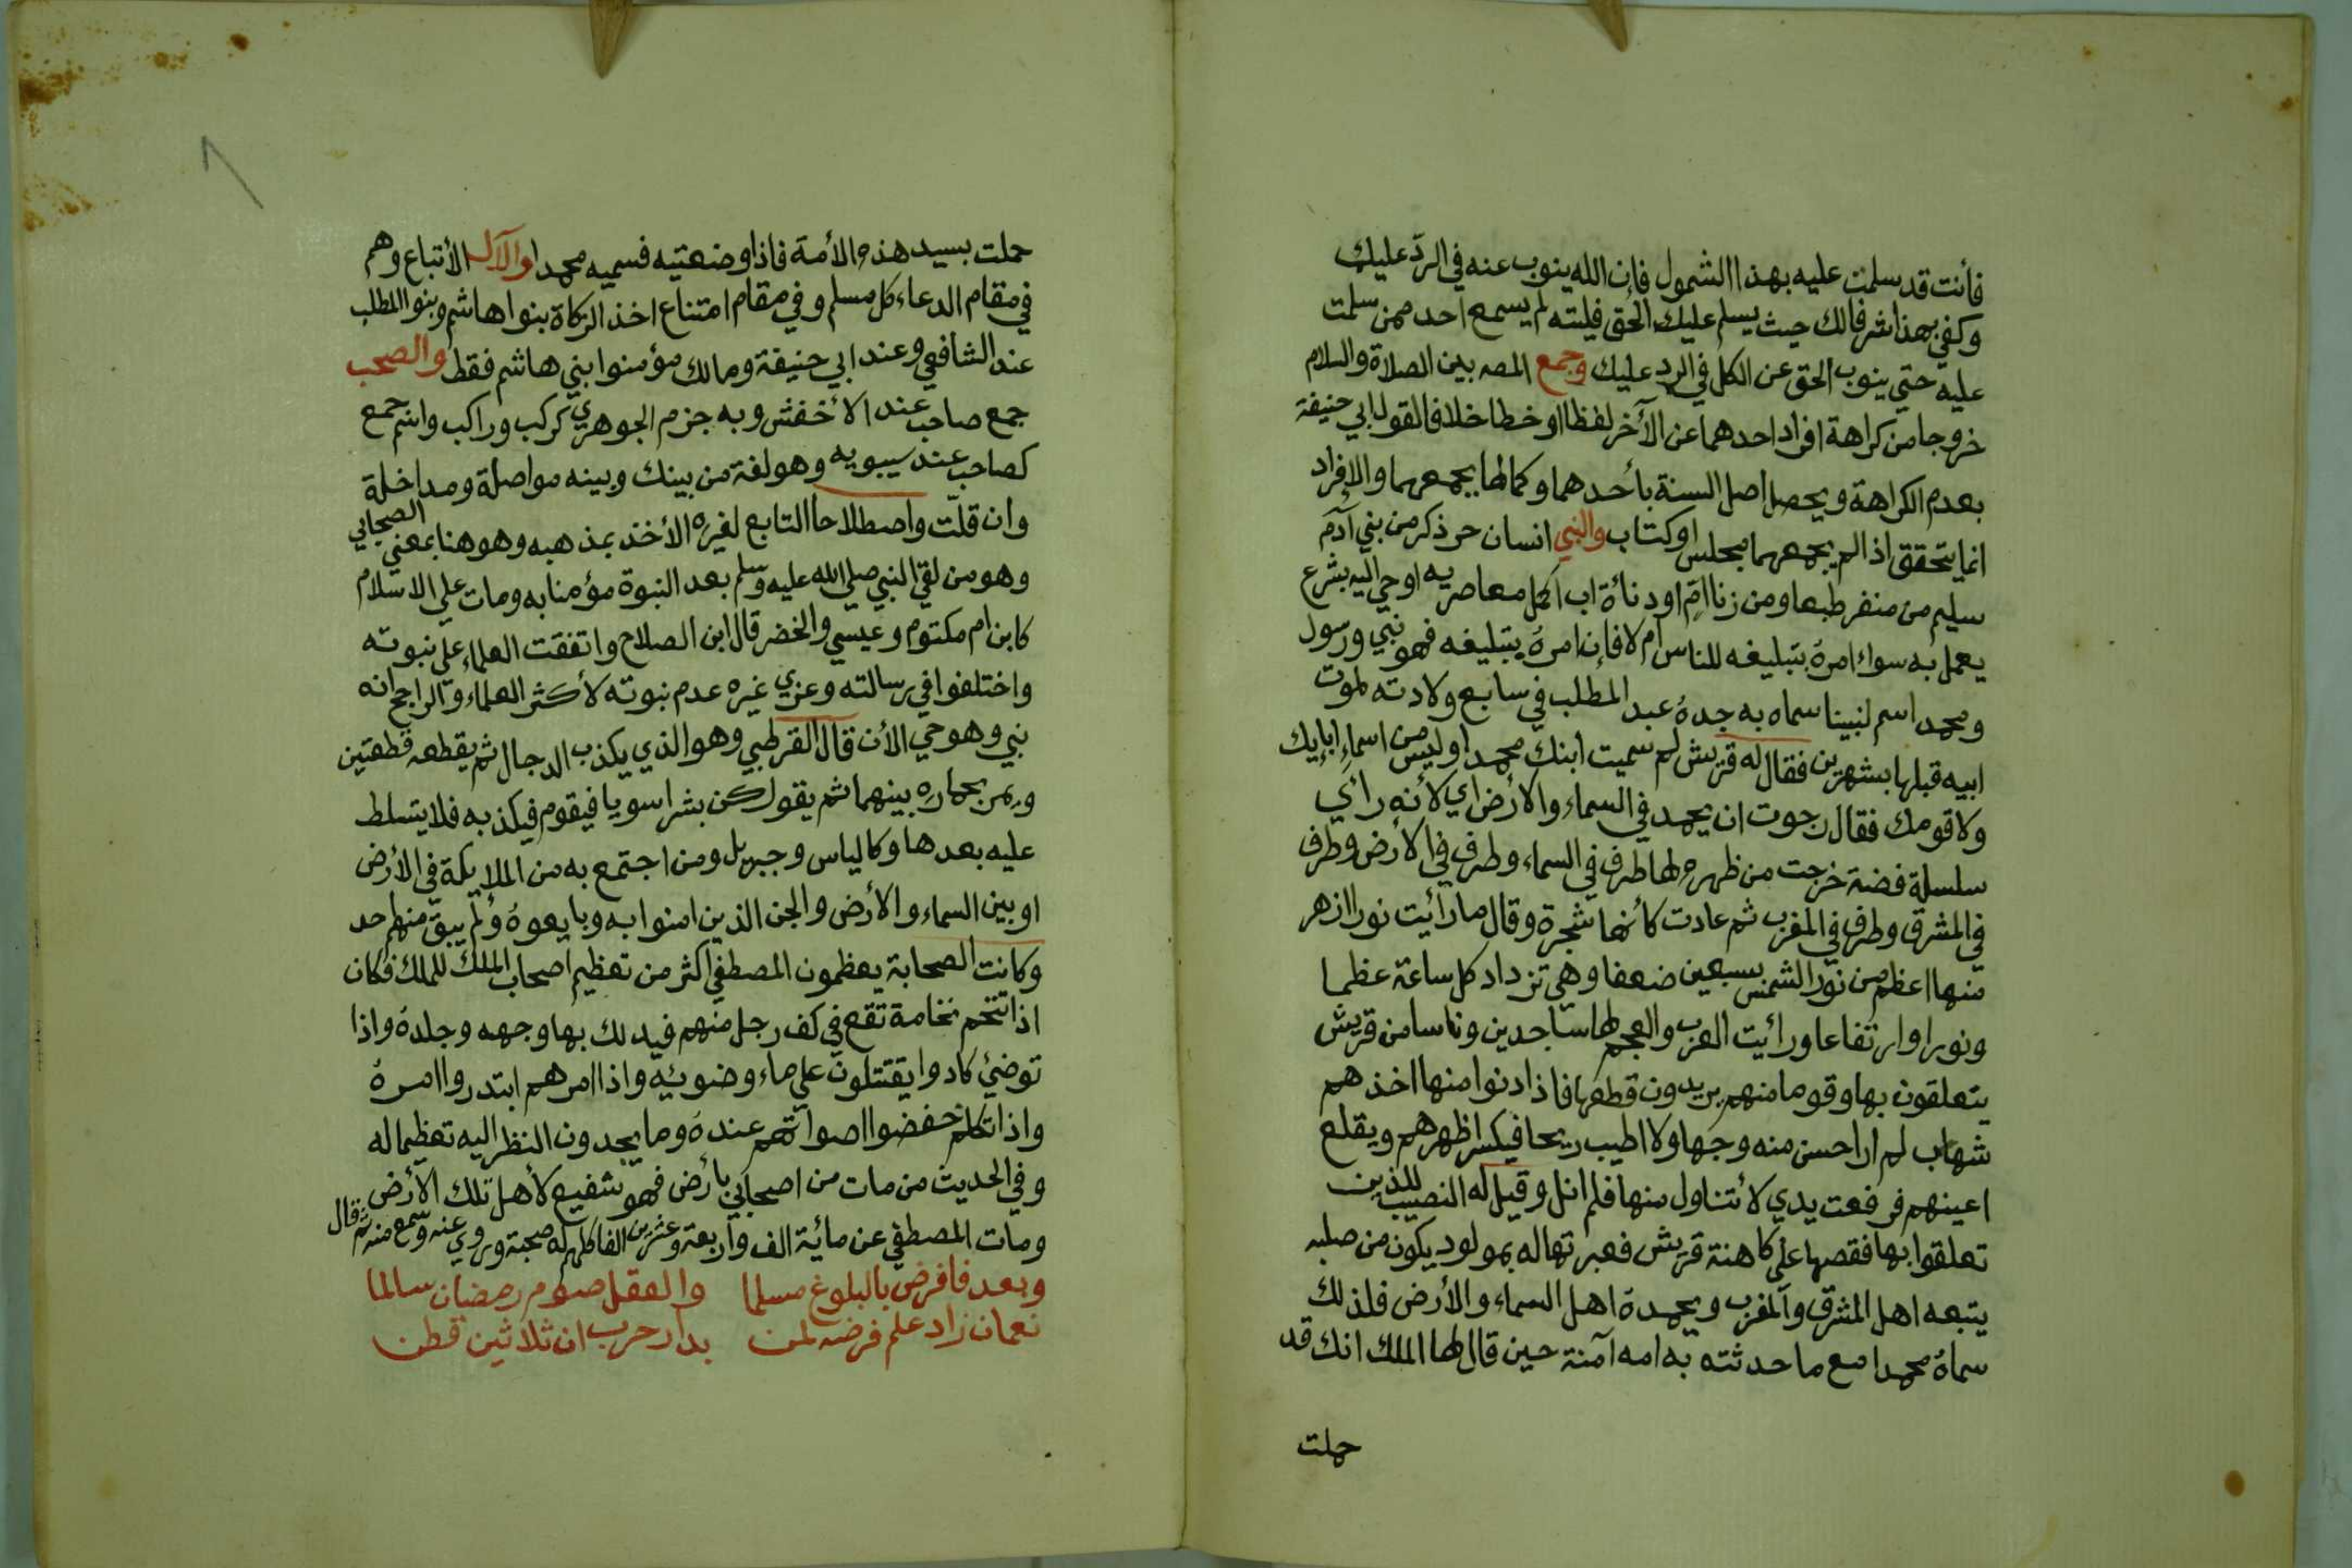 فأنت قد سلمت عليه بهذا الشمول فإن الله ينوب عنه في الرد عليك
وكفى بهذا شرفا لك حيث يسلم عليك الحق فليته لم يسمع احد ممن سلمت
عليه حتي ينوب الحق عن الكل في الرد عليك وجمع المصه بين الصلاة والسلام
خروجا من كراهة افراد احدهما عن الآخر لفظا او خطا خلافا لقول ابي حنيفة
بعدم الكراهة ويحصل اصل السنة بأحدهما وكمالها بجمعهما والافراد
انما يتحقق اذا لم يجمعهما مجلس او كتاب والنبي انسان حر ذكر من بني آدم
سليم من منفر طبعا ومن زنا ام او دنائة اب اكمل معاصريه اوحي اليه بشرع
يعمل به سواء امره بتبليغه للناس ام لا فإن امره بتبليغه فهو نبي ورسول
ومحمد اسم لنبينا سماه به جده عبد المطلب في سابع ولادته لموت
ابيه قبلها بشهرين فقال له قريش لم سميت ابنك محمدا وليس من اسماء ابايك
ولا قومك فقال رجوت ان يحمد في السماء والأرض اي لأنه رأي
سلسلة فضة خرجت من ظهره لها طرف في السماء وطرف في الأرض وطرف
في المشرق وطرف في المغرب ثم عادت كأنها شجرة وقال ما رأيت نورا ازهر
منها اعظم من نور الشمس بسبعين ضعفا وهي تزداد كل ساعة عظما
ونورا وارتفاعا ورأيت العرب والعجم لها ساجدين وناسا من قريش
يتعلقون بها وقوما منهم يريدون قطعها فاذا دنوا منها اخذهم
شهاب لم ار احسن منه وجها ولا اطيب ريحا فيكسر اظهرهم ويقلع
اعينهم فرفعت يدي لأتناول منها فلم انل وقيل له النصيب للذين
تعلقوا بها فقصها على كاهنة قريش فعبرتها له بمولود يكون من صلبه
يتبعه اهل المشرق والمغرب ويحمده اهل السماء والأرض فلذلك
سماه محمدا مع ما حدثته به امه آمنة حين قال لها الملك انك قد
حملت
حملت بسيد هذه الأمة فاذا وضعتيه فسميه محمدا والآل الأتباع وهم
في مقام الدعاء كل مسلم وفي مقام امتناع اخذ الزكاة بنوا هاشم وبنوا المطلب
عند الشافعي وعند ابي حنيفة ومالك مؤمنوا بني هاشم فقط والصحب
جمع صاحب عند الأخفش وبه جزم الجوهري كركب وراكب واسم جمع
لصاحب عند سيبويه وهو لغة من بينك وبينه مواصلة ومداخلة
وان قلت واصطلاحا التابع لغيره الأخذ بمذهبه وهو هنا بمعني الصحابي
وهو من لقي النبي صلي الله عليه وسلم بعد النبوة مؤمنا به ومات علي الاسلام
كابن ام مكتوم وعيسي والخضر قال ابن الصلاح واتفقت العلماء علي نبوته
واختلفوا في رسالته وعزي غيره عدم نبوته لأكثر العلماء والراجح انه
نبي وهو حي الأن قال القرطبي وهو الذي يكذب الدجال ثم يقطعه قطعتين
ويمر بحماره بينهما ثم يقول كن بشرا سويا فيقوم فيكذبه فلا يتسلط
عليه بعدها وكالياس وجبريل ومن اجتمع به من الملايكة في الأرض
او بين السماء والأرض والجن الذين امنوا به وبايعوه ولم يبق منهم احد
وكانت الصحابة يعظمون المصطفي اكثر من تعظيم اصحاب الملك للملك فكان
اذا تنخم نخامة تقع في كف رجل منهم فيدلك بها وجهه وجلده واذا
توضئ كادوا يقتتلون علي ماء وضوئيه واذا امرهم ابتدروا امره
واذا تكلم خفضوا اصواتهم عنده وما يحدون النظر اليه تعظيما له
وفي الحديث من مات من اصحابي بأرض فهو شفيع لأهل تلك الأرض
ومات المصطفي عن مائية الف واربعة وعشرين الفا كلهم له صحبة وروي عنه وسمع منه ثم قال
وبعد فافرض بالبلوغ مسلما والعقل صوم رمضان سالما
نعمان زاد علم فرضه لمن بدار حرب ان ثلاثين قطن